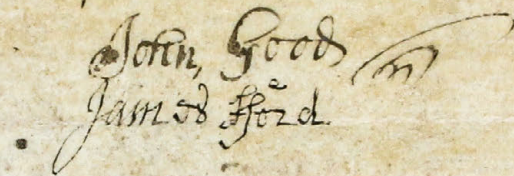 John, Good
James fford